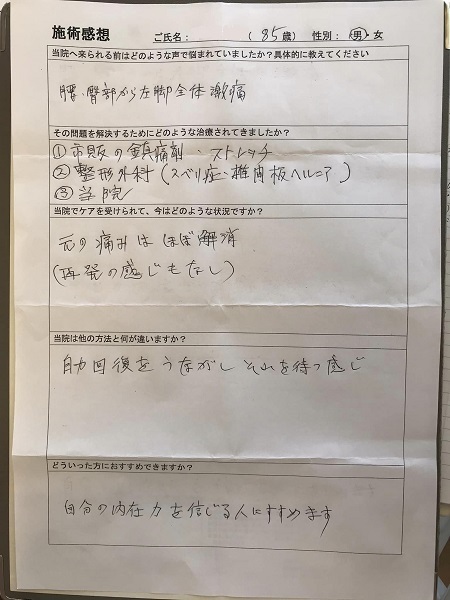 施術感想 ご氏名: (85歳) 性別: 男・女
当院へ来られる前はどのような声で悩まれていましたか?具体的に教えてください
腰、臀部から左脚全体激痛
その問題を解決するためにどのような治療されてきましたか?
①市販の鎮痛剤、ストレッチ
②整形外科(スベリ症、椎間板ヘルニア)
③当院
当院でケアを受けられて、今はどのような状況ですか?
元の痛みはほぼ解消
(再発の感じもなし)
当院は他の方法と何が違いますか?
自力回復をうながしそれを待つ感じ
どういった方におすすめできますか?
自分の内在力を信じる人にすすめます